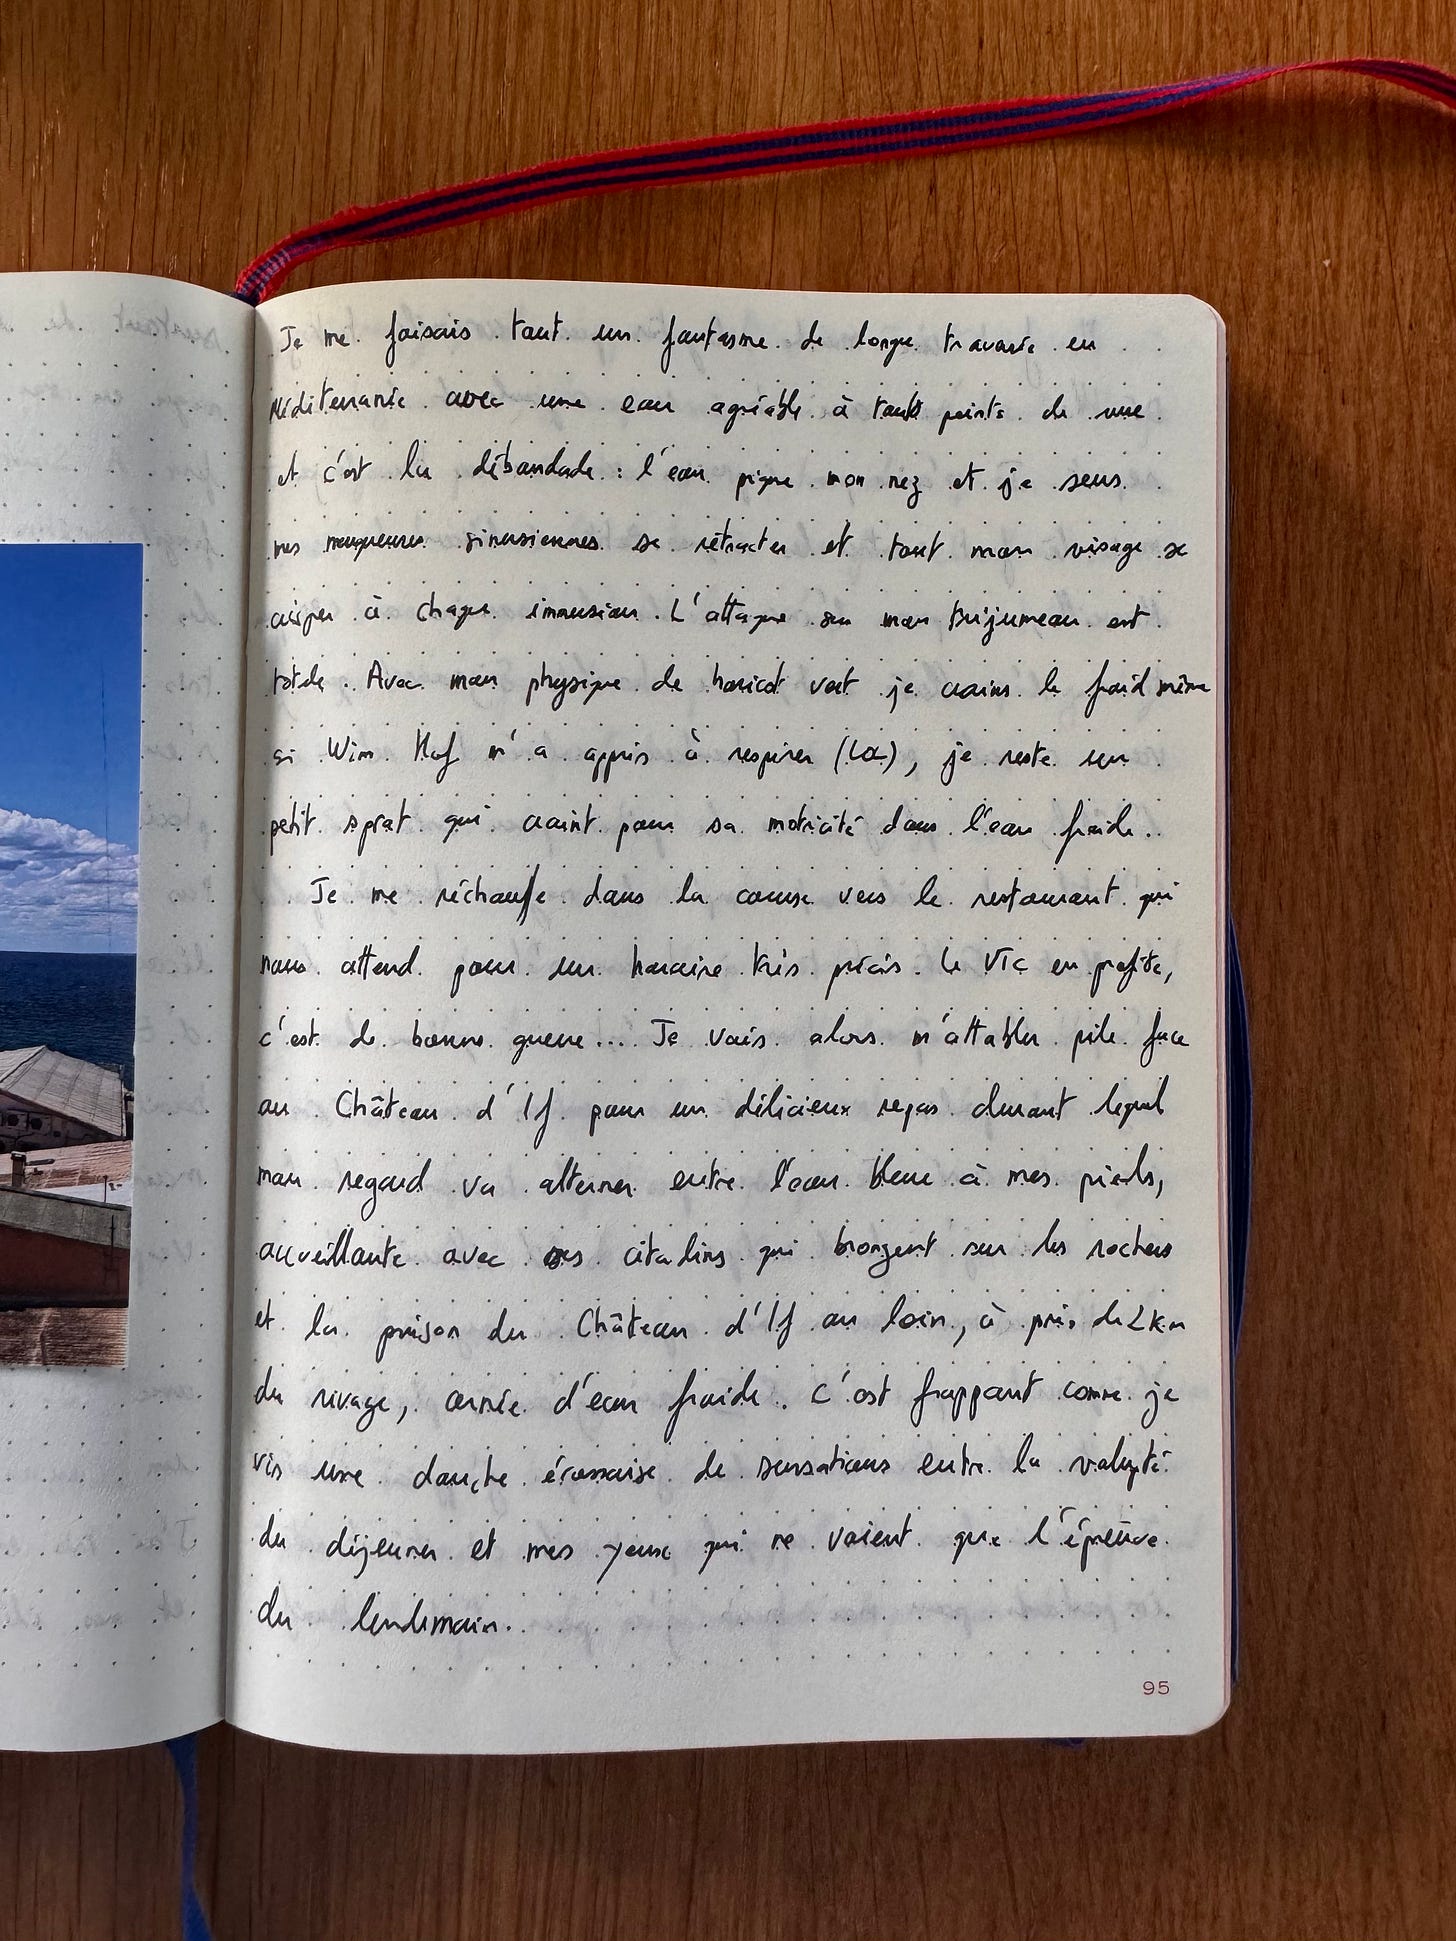 Je me faisais tout un fantasme de longue traversée en
Méditerranée avec une eau agréable à touts points de vue
et c'est la débandade : l'eau pique mon nez et je sens
mes muqueuses sinusiennes se rétracter et tout mon visage se
crisper à chaque immersion. L'attaque sur mon trijumeau est
totale. Avec mon physique de haricot vert je crains le froid même
si Wim Hof m'a appris à respirer (LOL), je reste un
petit sprat qui craint pour sa motricité dans l'eau froide.
Je me réchauffe dans la course vers le restaurant qui
nous attend pour un horaire très précis. Le VTC en profite,
c'est de bonne guerre... Je vais alors m'attabler pile face
au Château d'If pour un délicieux repas durant lequel
mon regard va alterner entre l'eau bleue à mes pieds,
accueillante avec ses citadins qui bronzent sur les rochers
et la prison du Château d'If au loin, à près de 2km
du rivage, cernée d'eau froide. C'est frappant comme je
vis une douche écossaise de sensations entre la volupté
du déjeuner et mes yeux qui ne voient que l'épreuve
du lendemain.
95